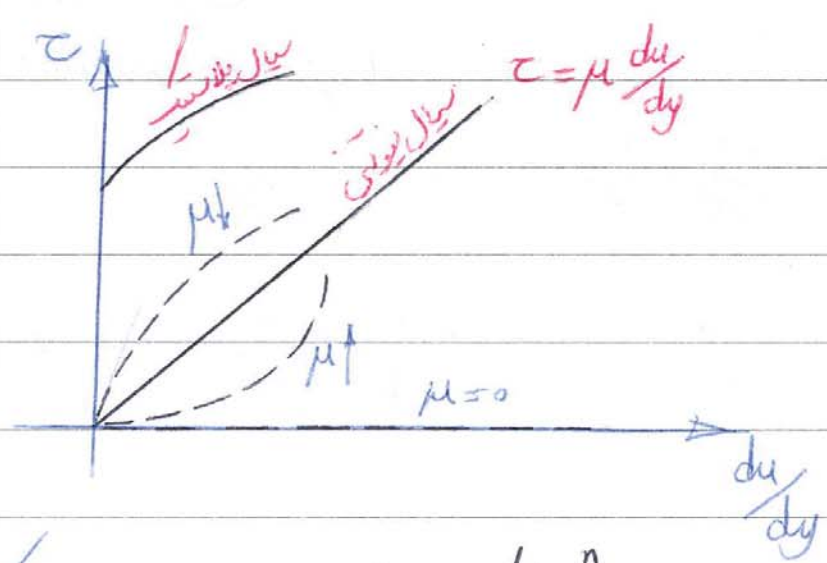 τ
سیال پلاستیک
τ = μ du/dy
سیال نیوتنی
μ↓
μ↑
μ = 0
du/dy
n